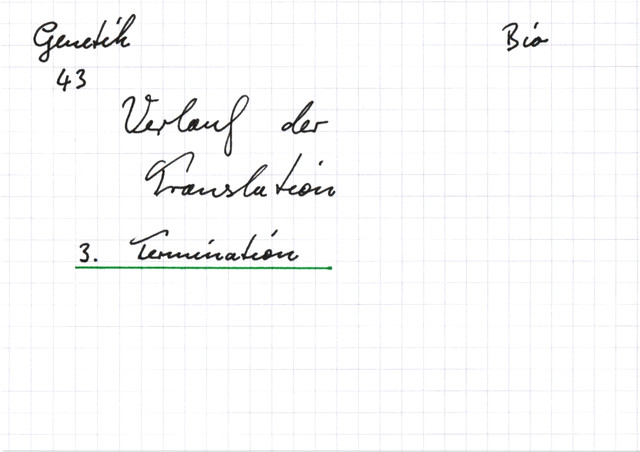 Genetik Bio
43
Verlauf der
Translation
3. Termination